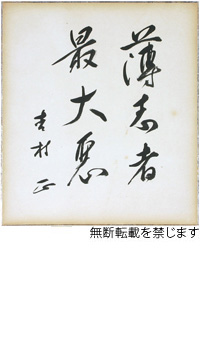 薄志者
最大悪
吉村正
無断転載を禁じます